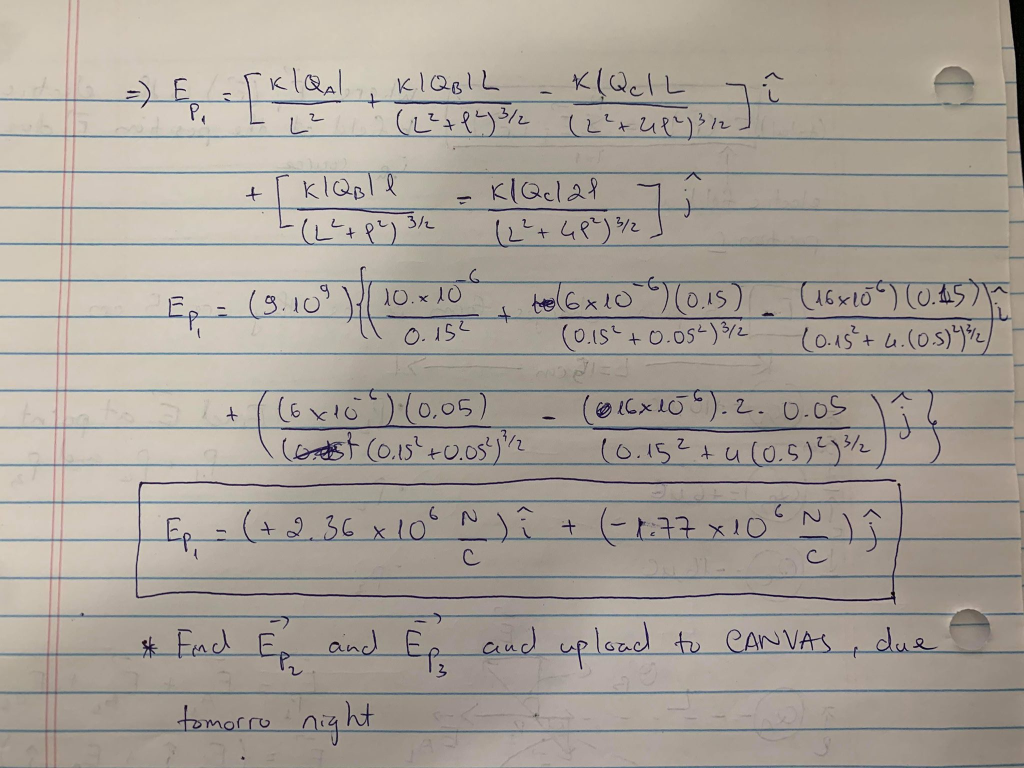 => E_P₁ = [ K|Q_A| / L² + K|Q_B|L / (L²+ℓ²)^3/2 - K|Q_C|L / (L²+4ℓ²)^3/2 ] î
+ [ K|Q_B|ℓ / (L²+ℓ²)^3/2 - K|Q_C|2ℓ / (L²+4ℓ²)^3/2 ] ĵ
E_P₁ = (9.10⁹){( 10.×10⁻⁶ / 0.15² + (6×10⁻⁶)(0.15) / (0.15²+0.05²)^3/2 - (16×10⁻⁶)(0.15) / (0.15²+4.(0.5)²)^3/2 ) î
+ ( (6×10⁻⁶)(0.05) / (0.15²+0.05²)^3/2 - (16×10⁻⁶).2.0.05 / (0.15²+4(0.5)²)^3/2 ) ĵ}
E_P₁ = (+2.36×10⁶ N/C) î + (-1.77×10⁶ N/C) ĵ
* Find E⃗_P₂ and E⃗_P₃ and upload to CANVAS, due
tomorro night